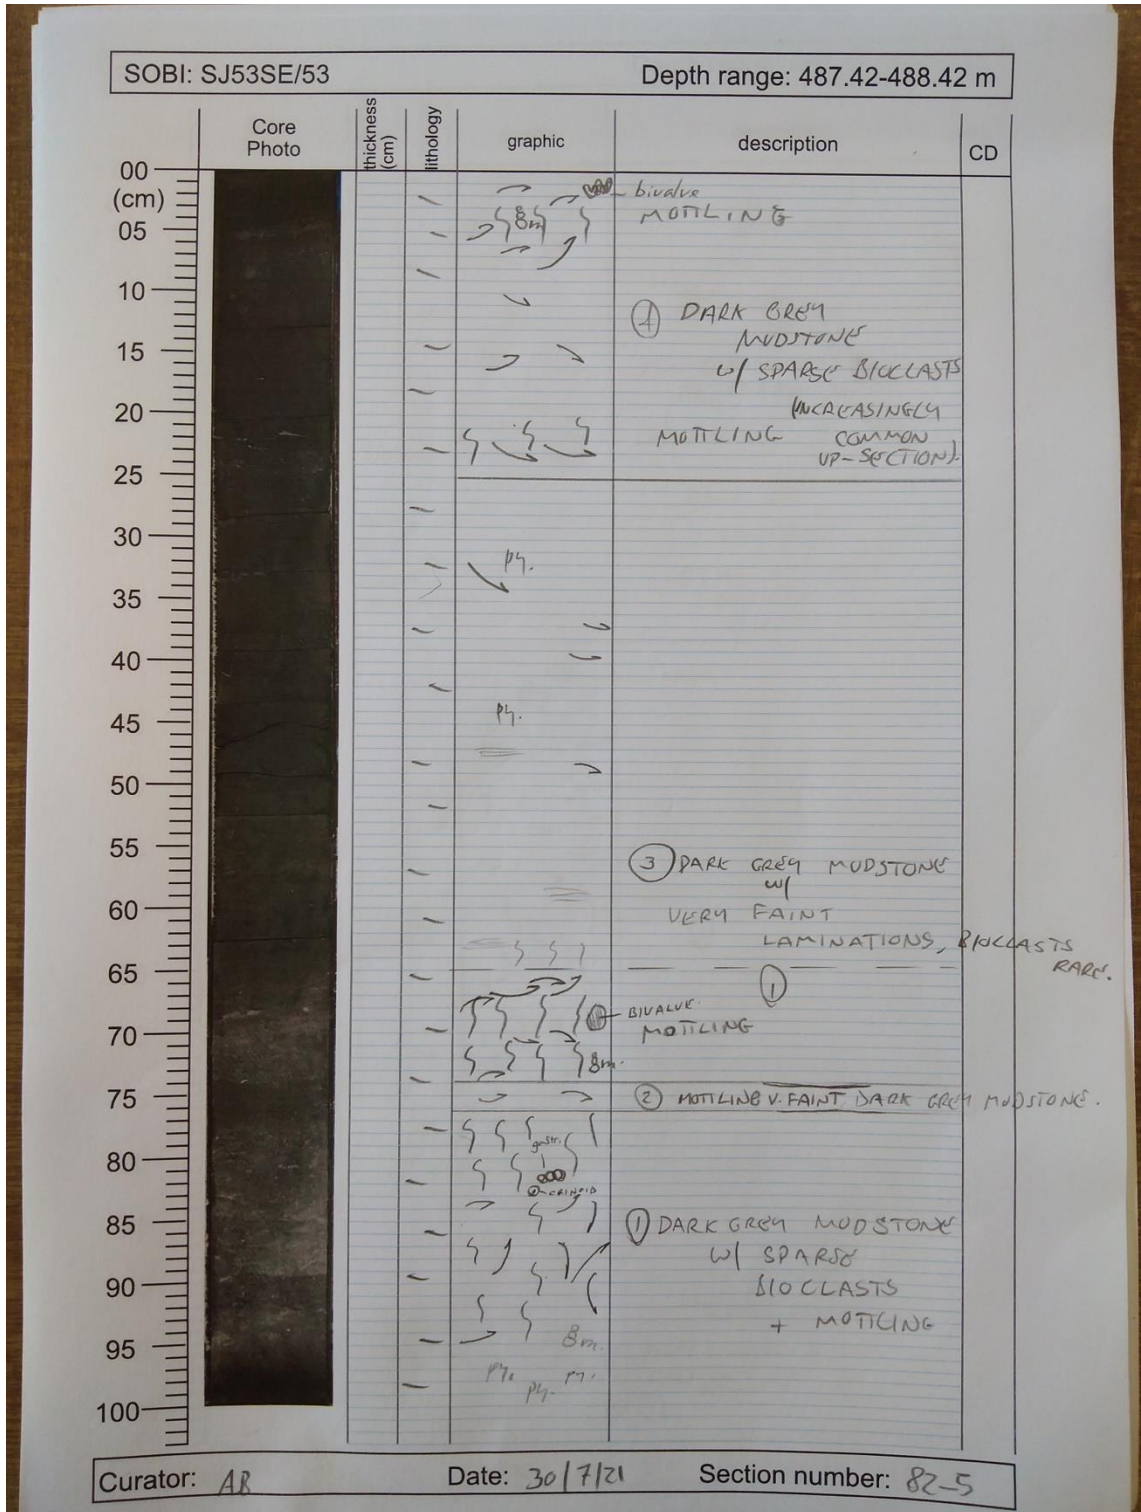 SOBI: SJ53SE/53
Depth range: 487.42-488.42 m
Core
Photo
thickness
(cm)
lithology
graphic
description
CD
00
(cm)
05
10
15
20
25
30
35
40
45
50
55
60
65
70
75
80
85
90
95
100
bivalve
MOTTLING
8m
DARK GREY
MUDSTONE
w/ SPARSE BIOCLASTS
(INCREASINGLY
MOTTLING COMMON
UP-SECTION).
py.
py.
③ DARK GREY MUDSTONE
w/
VERY FAINT
LAMINATIONS, BIOCLASTS
RARE.
①
BIVALVE
MOTTLING
8m.
② MOTTLING V. FAINT DARK GREY MUDSTONE.
gastr.
CRINOID
① DARK GREY MUDSTONE
w/ SPARSE
BIOCLASTS
+ MOTTLING
8m.
py. py. py.
Curator: AB
Date: 30/7/21
Section number: 82-5